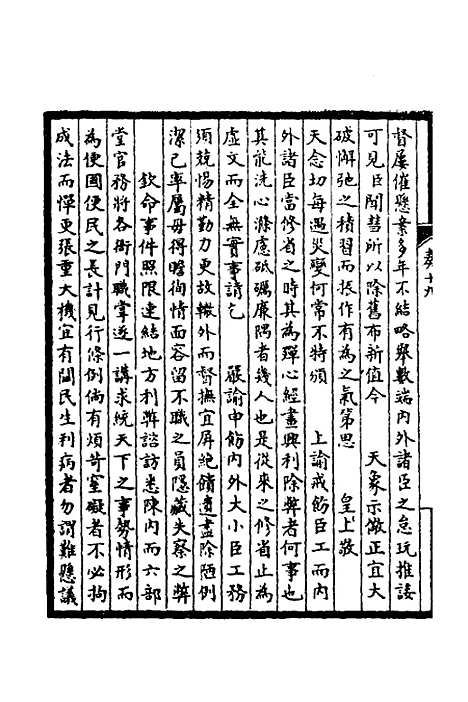 督屢催懸案多年不結略舉數端內外諸臣之怠玩推諉
可見臣聞彗所以除舊布新值今　天象示儆正宜大
破懈弛之積習而振作有為之氣第思　皇上敬
天念切每遇災變何常不特頒　上諭戒飭臣工而內
外諸臣當修省之時其為殫心經畫興利除弊者何事也
其能洗心滌慮砥礪廉隅者幾人也是從來之修省止為
虛文而全無實事請乞　嚴諭申飭內外大小臣工務
須兢惕精勤力更故轍外而督撫宜屏絕饋遺盡除陋例
潔己率屬毋得瞻徇情面容留不職之員隱藏失察之弊
欽命事件照限速結地方利弊諮訪悉陳內而六部
堂官務將各衙門職掌逐一講求統天下之事勢情形而
為便國便民之長計見行條例倘有煩苛窒礙者不必拘
成法而憚更張重大機宜有關民生利病者勿謂難懸議
奏 十九